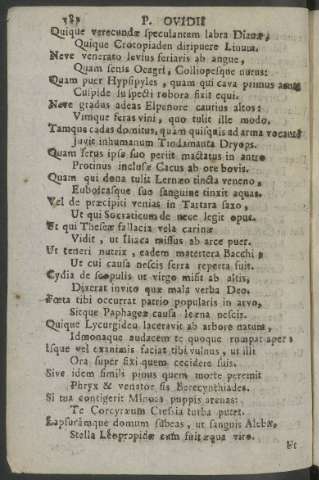 P. OVIDII
Quique verecundæ speculantem labra Dianæ,
Quique Crotopiaden diripuere Linum.
Neve venerato levius feriaris ab angue,
Quam senis Oeagri, Calliopesque nurus:
Quam puer Hypsipyles, quam qui cava primus
Cuspide suspecti robora fixit equi.
Neve gradus adeas Elpenore cautius altos:
Vimque feras vini, quo tulit ille modo.
Tamque cadas domitus, quam quisquis ad arma vocantem
Juvit inhumanum Thiodamanta Dryops.
Quam ferus ipse suo periit mactatus in antro
Protinus inclusæ Cacus ab ore bovis.
Quam qui dona tulit Lernæo tincta veneno,
Euboicasque suo sanguine tinxit aquas.
Vel de præcipiti venias in Tartara saxo,
Ut qui Socraticum de nece legit opus.
Et qui Theseæ fallacia vela carinæ
Vidit, ut Iliaca missus ab arce puer.
Ut teneri nutrix, eadem matertera Bacchi;
Ut cui causa necis serra reperta fuit.
Lydia de scopulis ut virgo misit ab altis,
Dixerat invito quæ mala verba Deo.
Fœta tibi occurrat patrio popularis in arvo,
Sitque Paphageæ causa leæna necis.
Quique Lycurgiden laceravit ab arbore natum,
Idmonaque audacem te quoque rumpat aper:
Isque vel exanimis faciat tibi vulnus, ut illi
Ora super fixi quem cecidere suis.
Sive idem similis pinus quem morte peremit
Phryx & venator sis Berecynthiades.
Si tua contigerit Minoas puppis arenas:
Te Corcyræum Cressia turba putet.
Lapsuramque domum subeas, ut sanguis Alebæ,
Stella Leoprepidæ cum fuit æqua viro.
Et